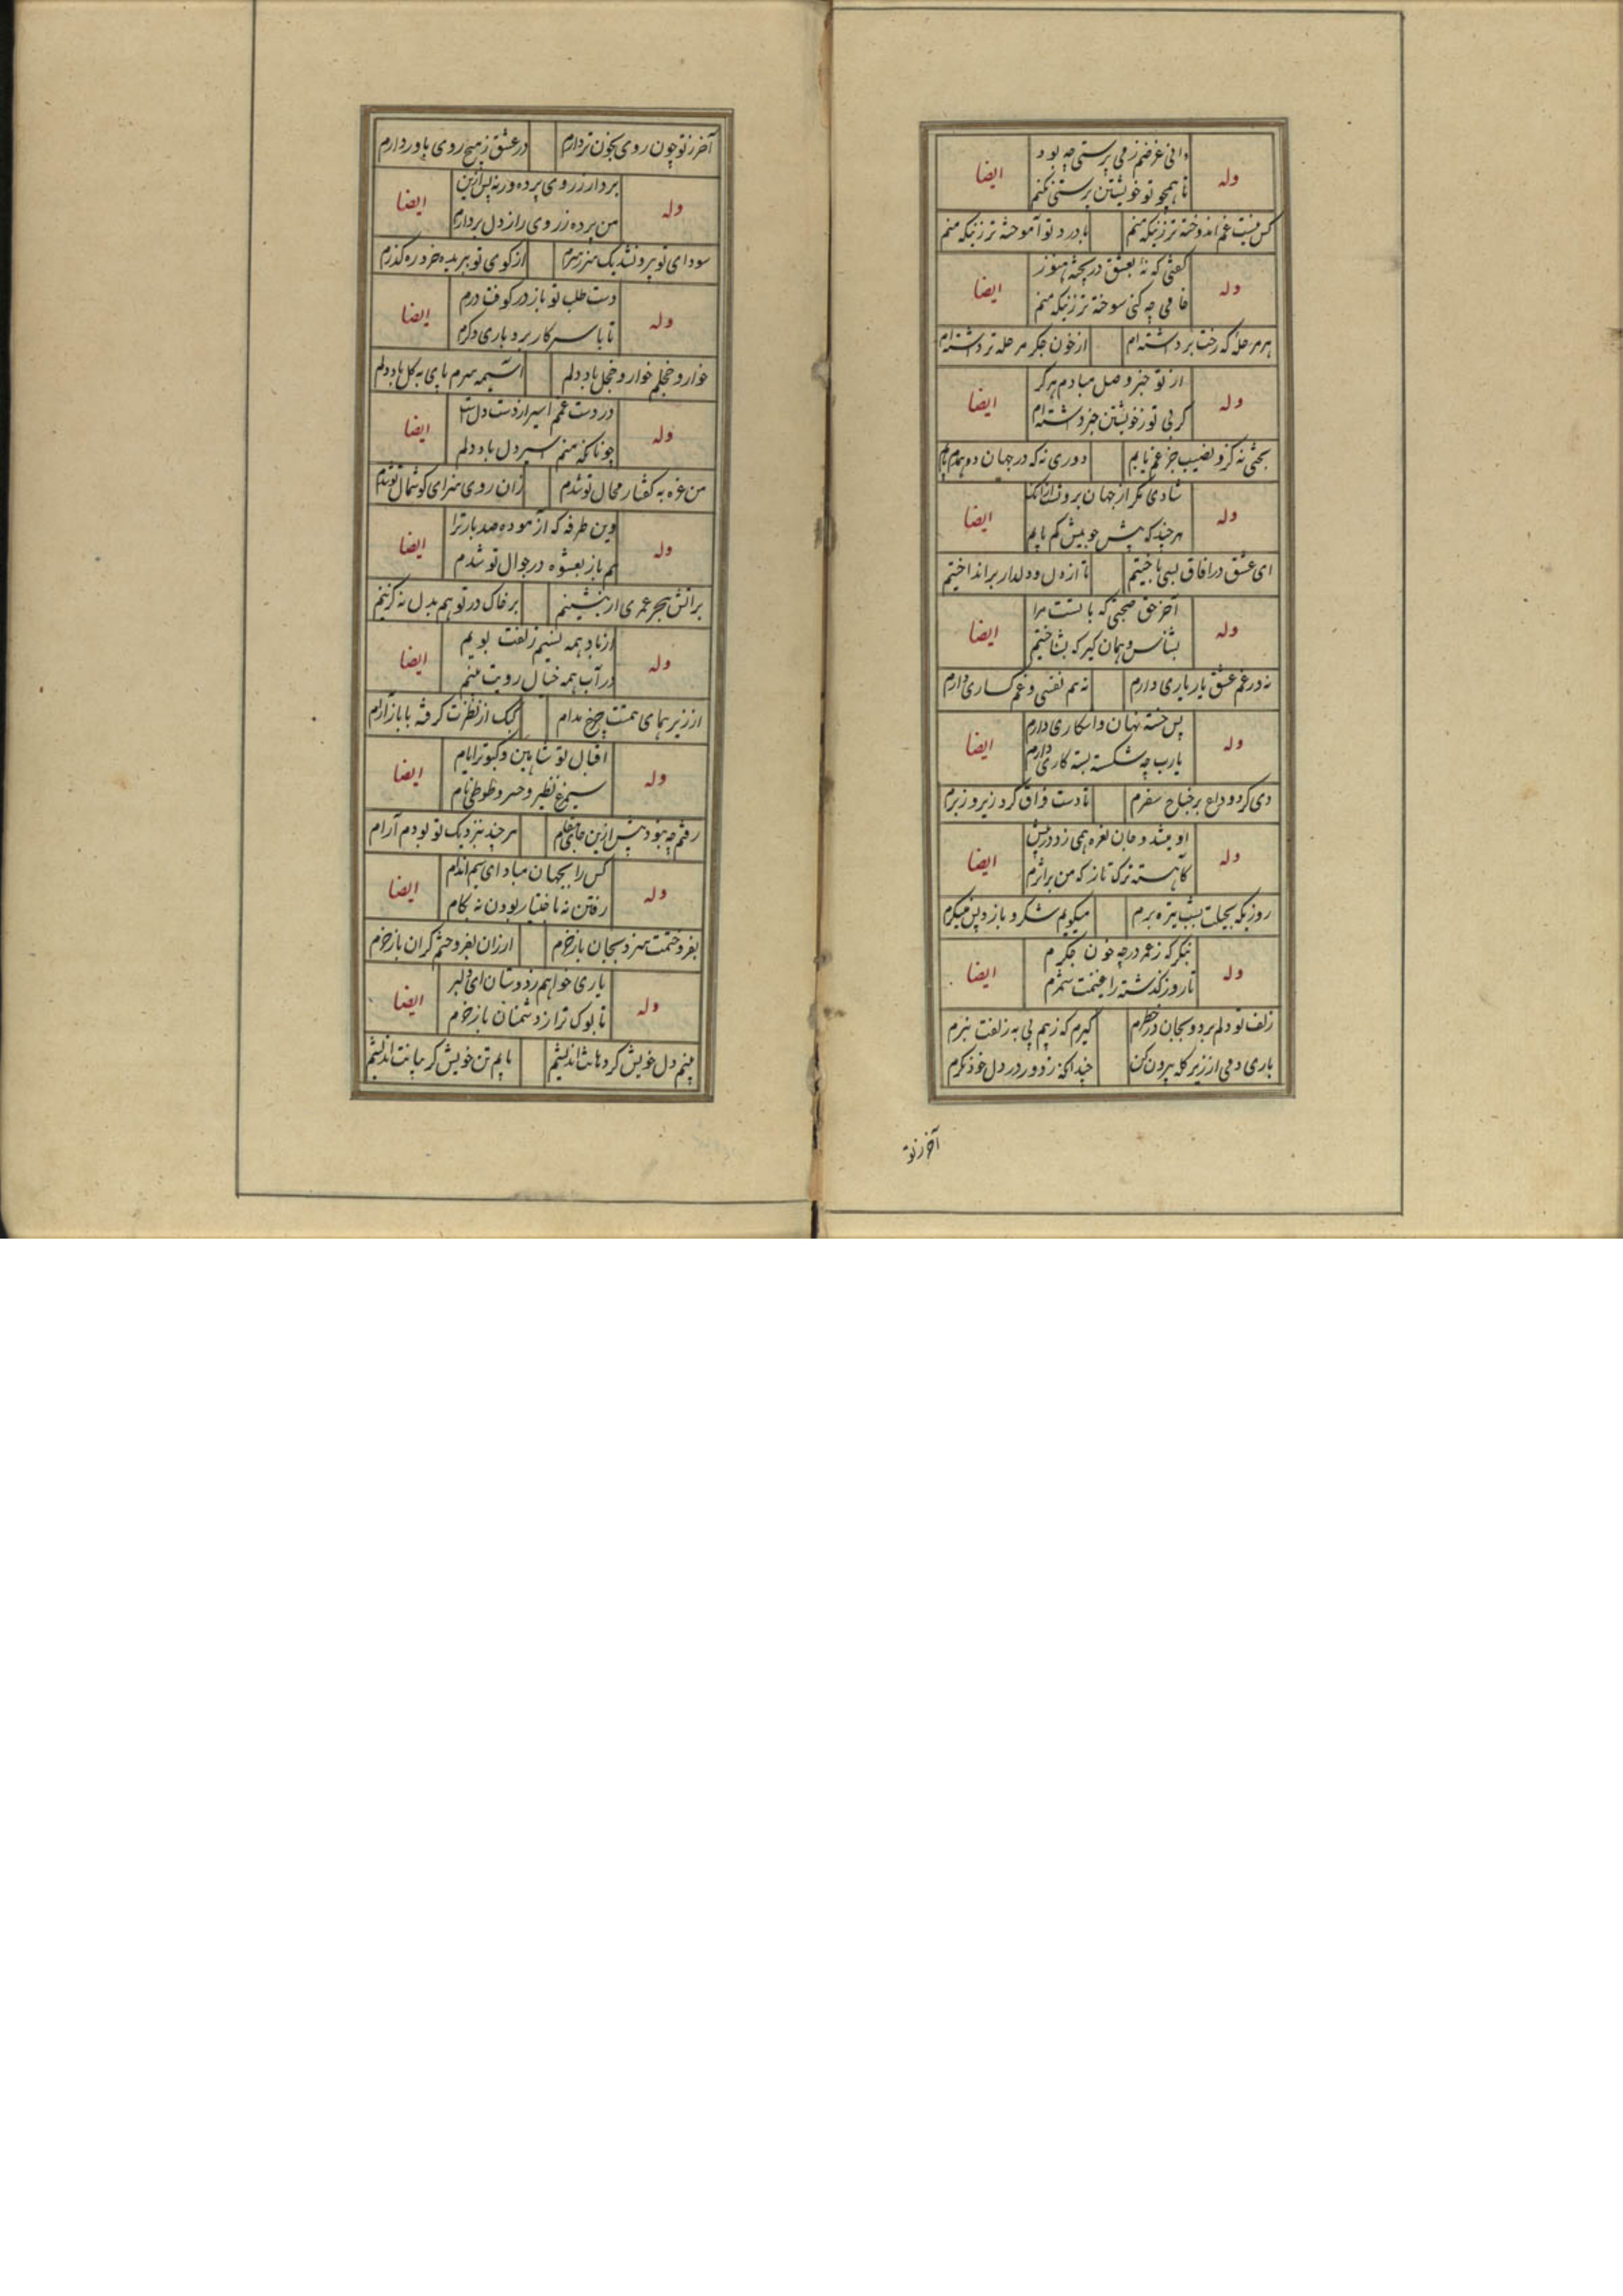 دانی غرضم ز می پرستی چه بود
وله ایضا
تا همچو تو خویشتن پرستی نکنم
کس نیست غم اندوخته تر زینکه منم با درد تو آموخته تر زینکه منم
گفتی که نهٔ بعشق در پخته هنوز
وله ایضا
خامی چه کنی سوخته تر زینکه منم
هر مرحله که رخت برداشته‌ام از خون جگر مرحله تر داشته‌ام
از تو خبر وصل مبادم هرگز
وله ایضا
گر بی تو ز خویشتن خبر داشته‌ام
بختی نه کزو نصیب جز غم یابم دوری نه که در جهان دو همدم یابم
شادی مگر از جهان برون شد زانک
وله ایضا
هر چند که بیش جو بیش کم یابم
ای عشق در افاق بسی تاختیم تا از دل و دلدار برانداختیم
آخر حق صحبتی که با تست مرا
وله ایضا
بشناس و همان گیر که نشناختیم
نه در غم عشق یار یاری دارم نه هم نفسی و غمگساری دارم
بس خسته نهان و اشکاری دارم
وله ایضا
یارب چه شکسته بسته کاری دارم
دی کرد وداع بر جناح سفرم تا دست فراق کرد زیر و زبرم
او میشد و جان نعره همی زد در پیش
وله ایضا
کاهسته ترک تاز که من بر اثرم
روزیکه بحیلت بشب تیره برم میگویم شکر و باز و پس مینگرم
بنگر که ز عمر در چه خون جگرم
وله ایضا
تا روز گذشته را غنیمت شمرم
زلف تو دلم برد و بجان در خطرم گیرم که ز بیم پی به زلفت نبرم
باری دمی از زیر کله بیرون کن چندانکه ز دور در دل خود نگرم
آخر ز تو
آخر ز تو چون روی بخون تر دارم در عشق ز هیچ روی یاور دارم
بردار ز روی پرده ورنه پس ازین
وله ایضا
من پرده ز روی راز دل بردارم
سودای تو بیرون نشد یک سر ز سرم از کوی تو ببریده خرد ره گذرم
دست طلب تو باز در کوفت درم
وله ایضا
تا با سر کار برد باری دگرم
خوار و خجلم خوار و خجل باد دلم آسیمه سرم پای به گل باد دلم
در دست غم اسیر از دست دل است
وله ایضا
چونانکه منم اسیر دل باد دلم
من غره به گفتار محال تو شدم زان روی سزای گوشمال تو شدم
وین طرفه که آزموده صد بار ترا
وله ایضا
هم باز بعشوه در جوال تو شدم
بر اتش هجر عمری ار بنشینم بر خاک در تو هم بدل نه گزینم
از باد همه نسیم زلفت بویم
وله ایضا
در آب همه خیال رویت بینم
از زیر همای همتت چرخ مدام کبک از نظرت گرفته با باز آرام
اقبال تو شاهین و کبوتر ایام
وله ایضا
سیمرغ نظیر و خسرو طوطی نام
رفتم چو نبود بیش ازین جای مقام هر چند بنزدیک تو بودم آرام
کس را بجهان مباد ای سیم اندام
وله ایضا
رفتن نه باختیار بودن نه بکام
بفروختمت سزد بجان باز خرم ارزان بفروختم گران باز خرم
یاری خواهم ز دوستان ای دلبر
وله ایضا
تا بوک ترا ز دشمنان باز خرم
بینم دل خویش گر دهانت اندیشم یابم تن خویش گر میانت اندیشم